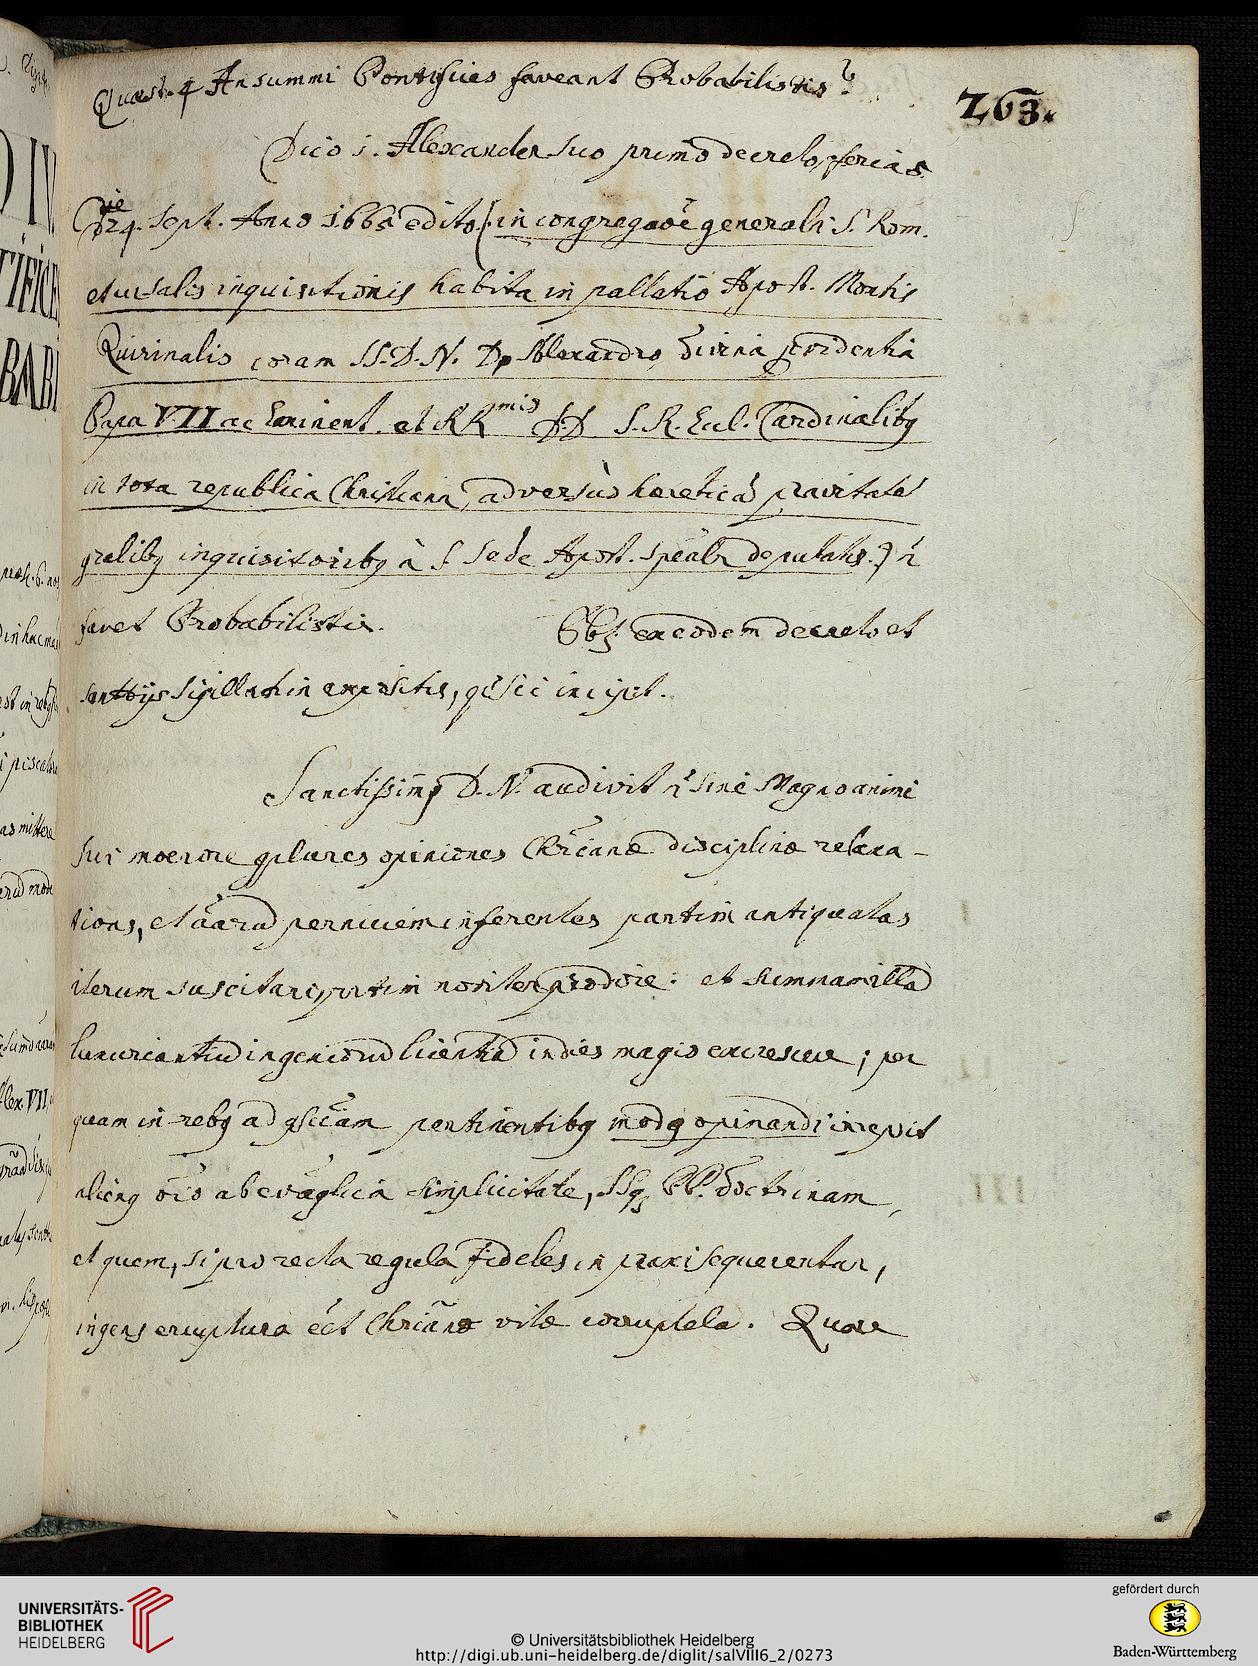 Quæst. 4 An summi Pontifices faveant Probabilistis?
263.
Dico 1. Alexander suo primo decreto, feria 5.
die 24. Sept. Anno 1665 edito (in congregaōē generali S. Rom.
et ūrsalis inquisitionis habita in pallatio Apost. Montis
Quirinalis coram SS. D. N. D. Alexandro, divina providentia
Papa VII ac Eminent. et RRmis D.D S. R. Eccl. Cardinalibꝯ
in tota republica Christiana, adversùs hæreticā pravitatē
gr̃alibꝯ inquisitoribꝯ à S Sede Apost. deputatis.) ñ
favet Probabilistis. Obs. ex eodem decreto et
sigillatim expositis, incipit.
Sanctissimꝯ D. N. audivit ñ sine Magno animi
sui moerore plures opiniones Chr̃ianæ disciplinæ relaxa-
tivas, et āarū perniciem inferentes partim antiquatas
iterum suscitari, partim noviter prodire: et summam illā
luxuriantiū ingeniorū licentiā in dies magis excrescere; per
quam in rebꝯ ad pertinentibꝯ modꝯ opinandi irrepsit
alienꝯ oīō ab evāglica simplicitate, SSqꝫ PP. doctrinam,
et quem, si pro recta regula fideles in praxi sequerentur,
ingens eruptura ēēt Chr̃ianæ vitæ corruptela. Quare
UNIVERSITÄTS-
BIBLIOTHEK
HEIDELBERG
© Universitätsbibliothek Heidelberg
http://digi.ub.uni-heidelberg.de/diglit/salVIII6_2/0273
gefördert durch
Baden-Württemberg